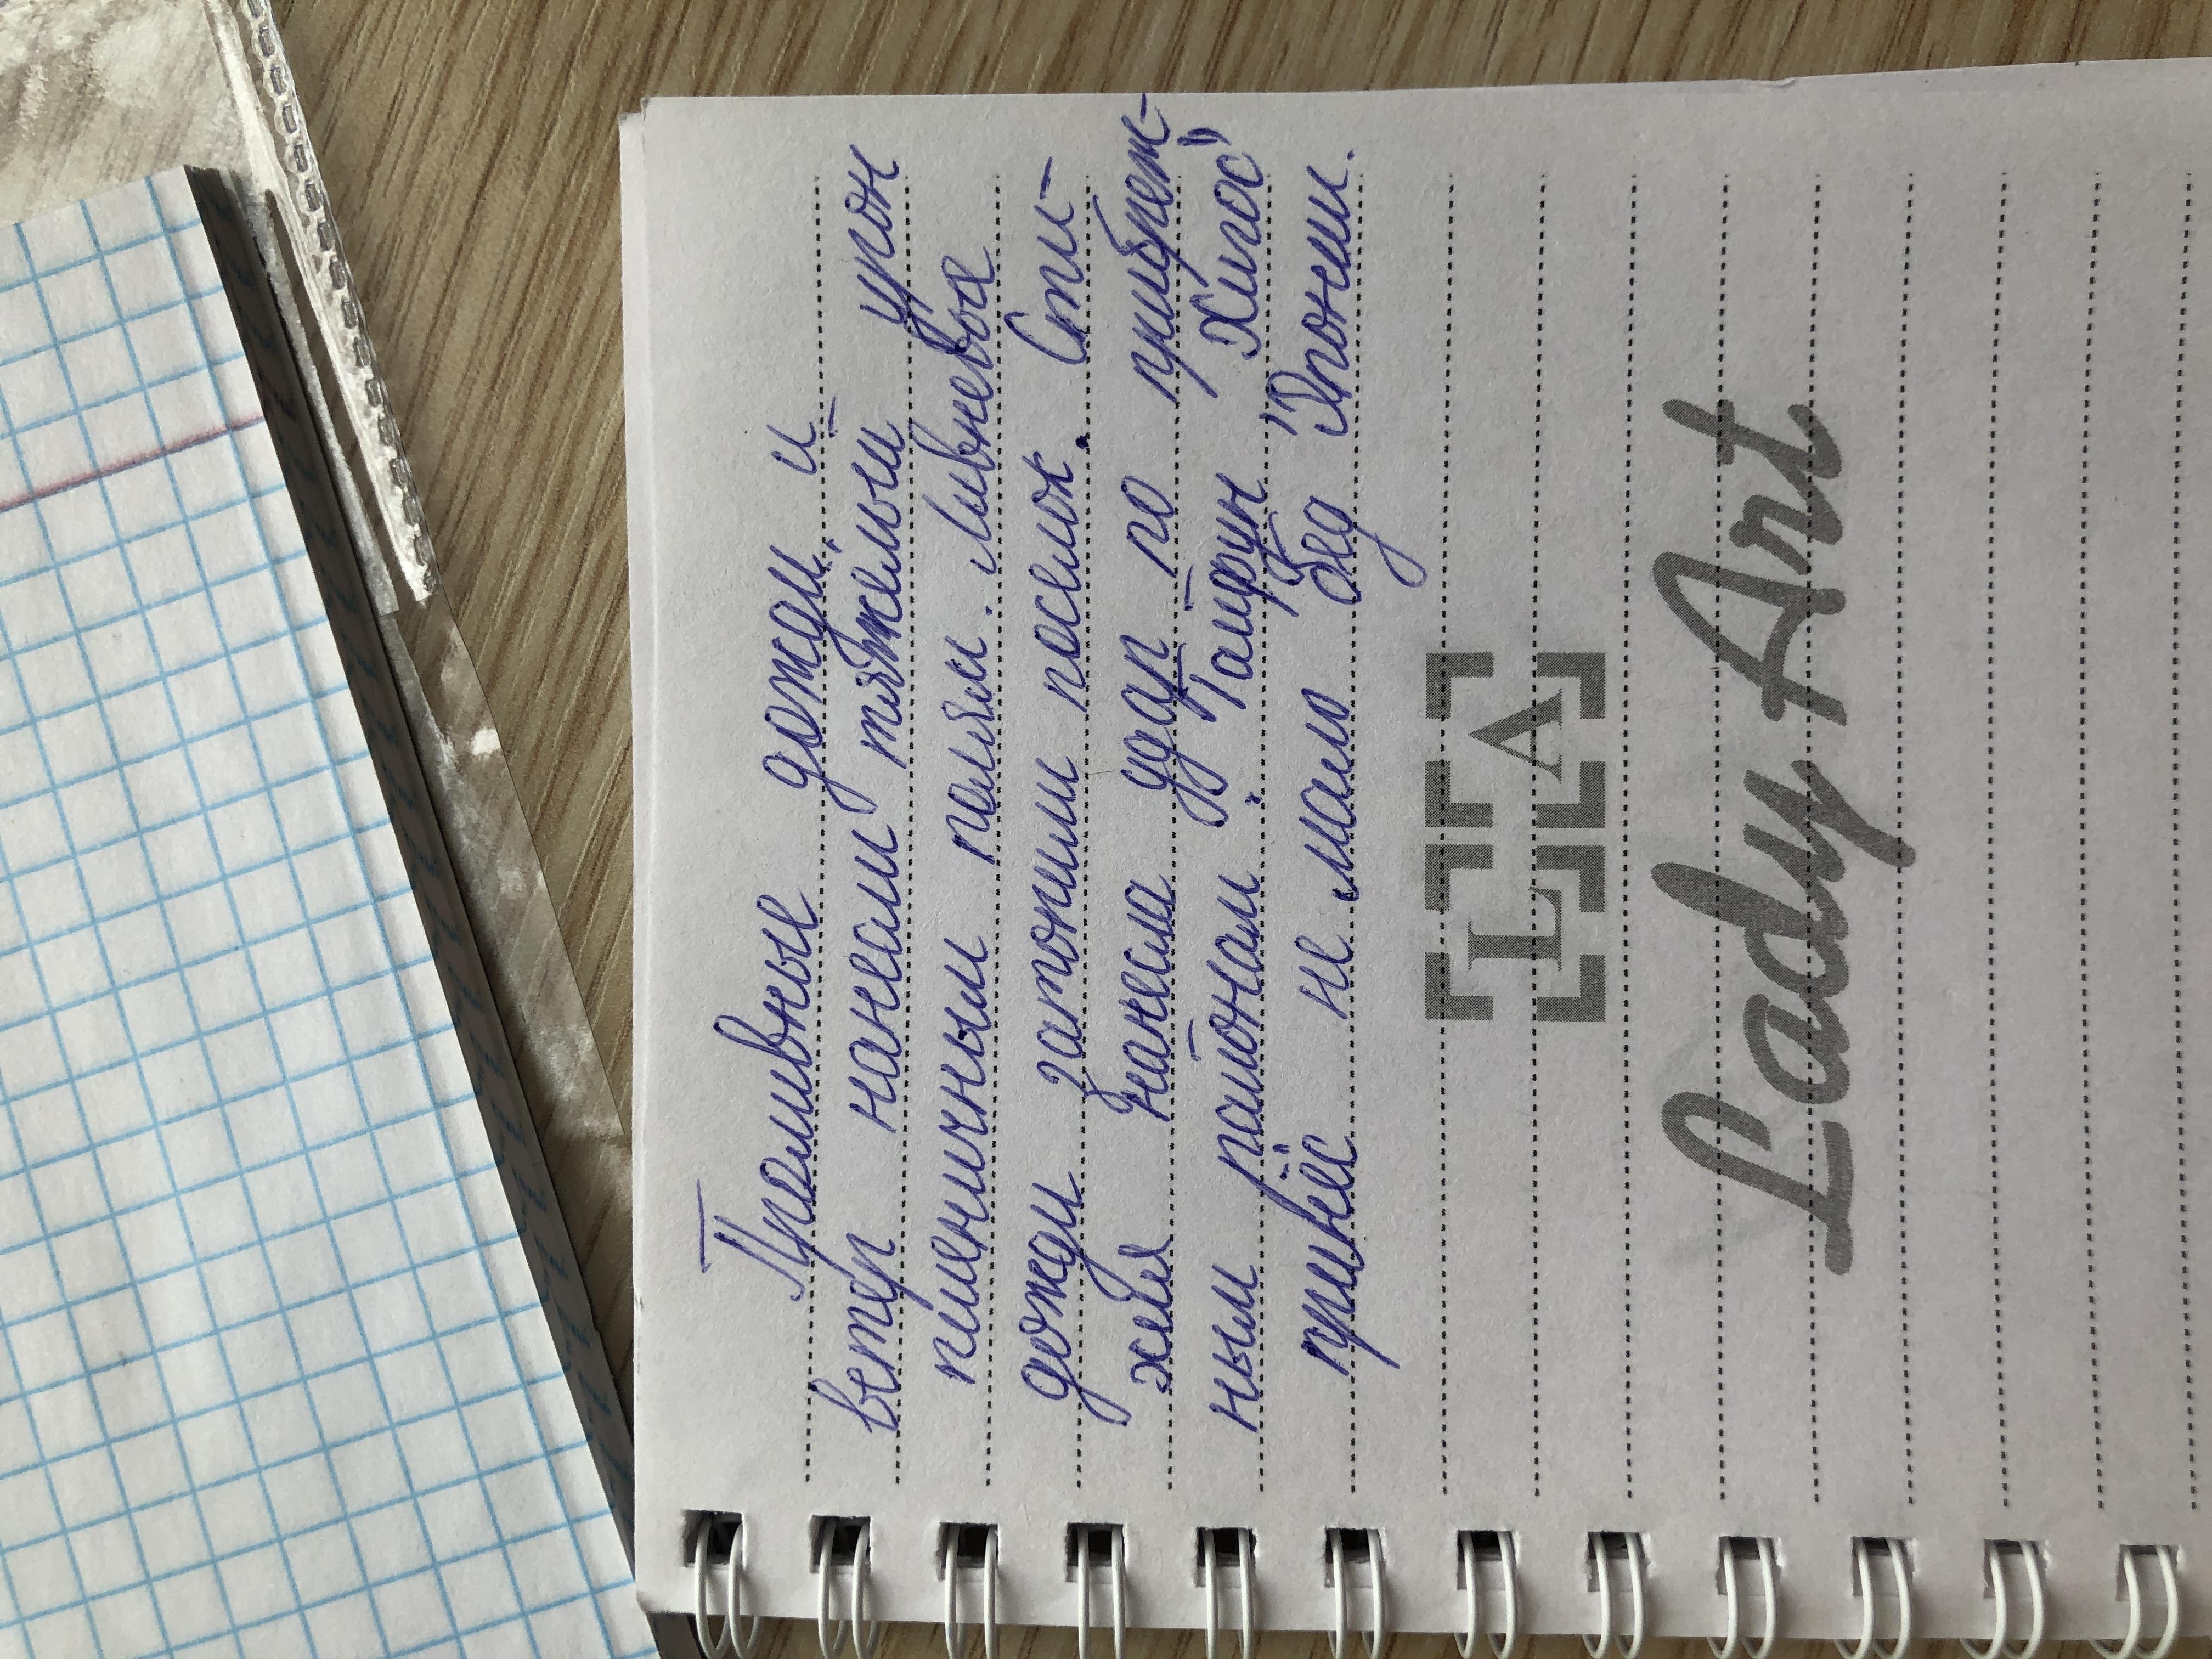 Проливные дожди и
ветер нанесли тяжёлый урон
пшеничным полям. Ливневые
дожди затопили поселок. Сти-
хия нанесла удар по прибреж-
ным районам. Тайфун "Хигос"
привёс не мало бед Японии.
L A
Lady Art